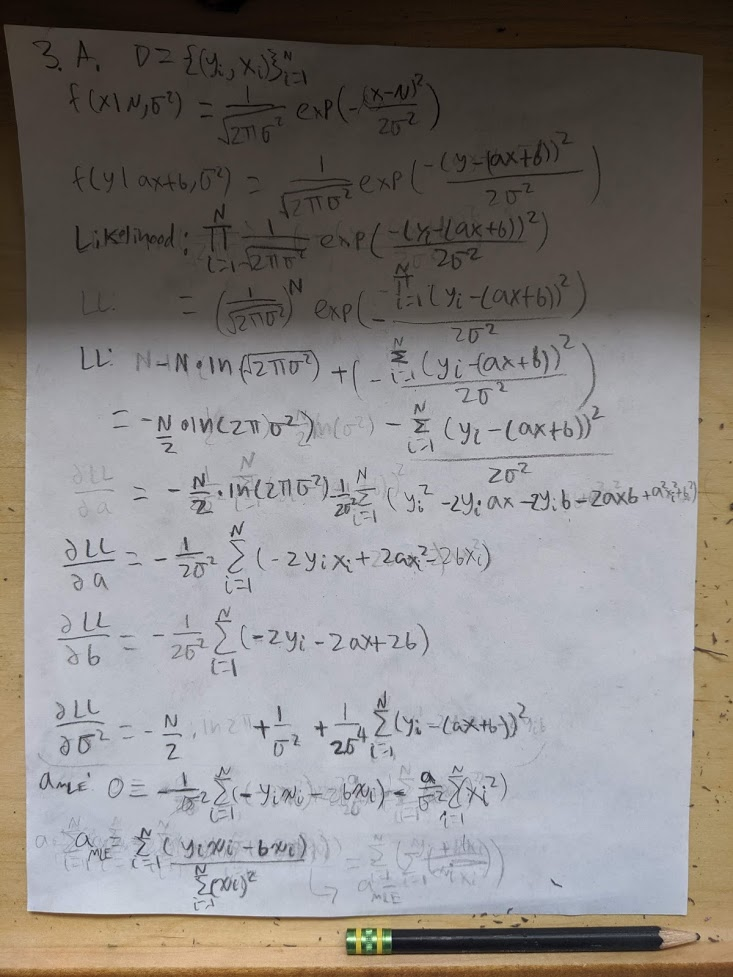 3. A. D = {(yi, xi)}_{i=1}^{N}
f(x|N, σ²) = 1/√(2πσ²) exp(-(x-N)²/2σ²)
f(y|ax+b, σ²) = 1/√(2πσ²) exp(-(y-(ax+b))²/2σ²)
Likelihood: ∏_{i=1}^{N} 1/√(2πσ²) exp(-(yi-(ax+b))²/2σ²)
LL: = (1/√(2πσ²))^N exp(-∏_{i=1}^{N}(yi-(ax+b))²/2σ²)
LL: -N·ln(√(2πσ²)) + (-Σ_{i=1}^{N}(yi-(ax+b))²/2σ²)
= -N/2 · ln(2πσ²) - Σ_{i=1}^{N}(yi-(ax+b))²/2σ²
∂LL/∂a = -N/2 · ln(2πσ²) - 1/2σ² Σ_{i=1}^{N} (yi² - 2yiax - 2yib - 2axb + a²xi² + b²)
∂LL/∂a = -1/2σ² Σ_{i=1}^{N} (-2yixi + 2axi² - 2bxi)
∂LL/∂b = -1/2σ² Σ_{i=1}^{N} (-2yi - 2ax + 2b)
∂LL/∂σ² = -N/2 · ln2π + 1/σ² + 1/2σ⁴ Σ_{i=1}^{N} (yi - (ax+b))²
a_MLE: 0 = -1/σ² Σ_{i=1}^{N} (-yixi - bxi) - a/σ² Σ_{i=1}^{N} (xi²)
a_MLE = Σ_{i=1}^{N} (yixi - bxi) / Σ_{i=1}^{N} (xi)²